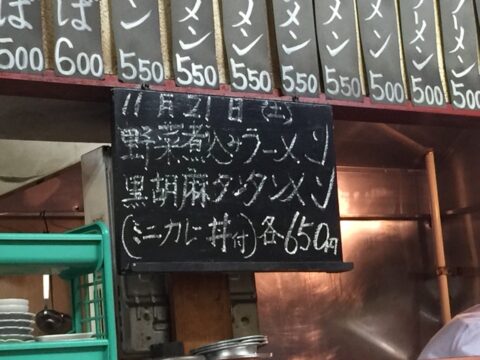 ば 500
ば 600
メン 550
メン 550
メン 550
メン 550
メン 550
メン 500
ーメン 500
ーメン 500
11月21日(土)
野菜煮込みラーメン
黒胡麻タンタンメン
(ミニカレー丼付)各650円